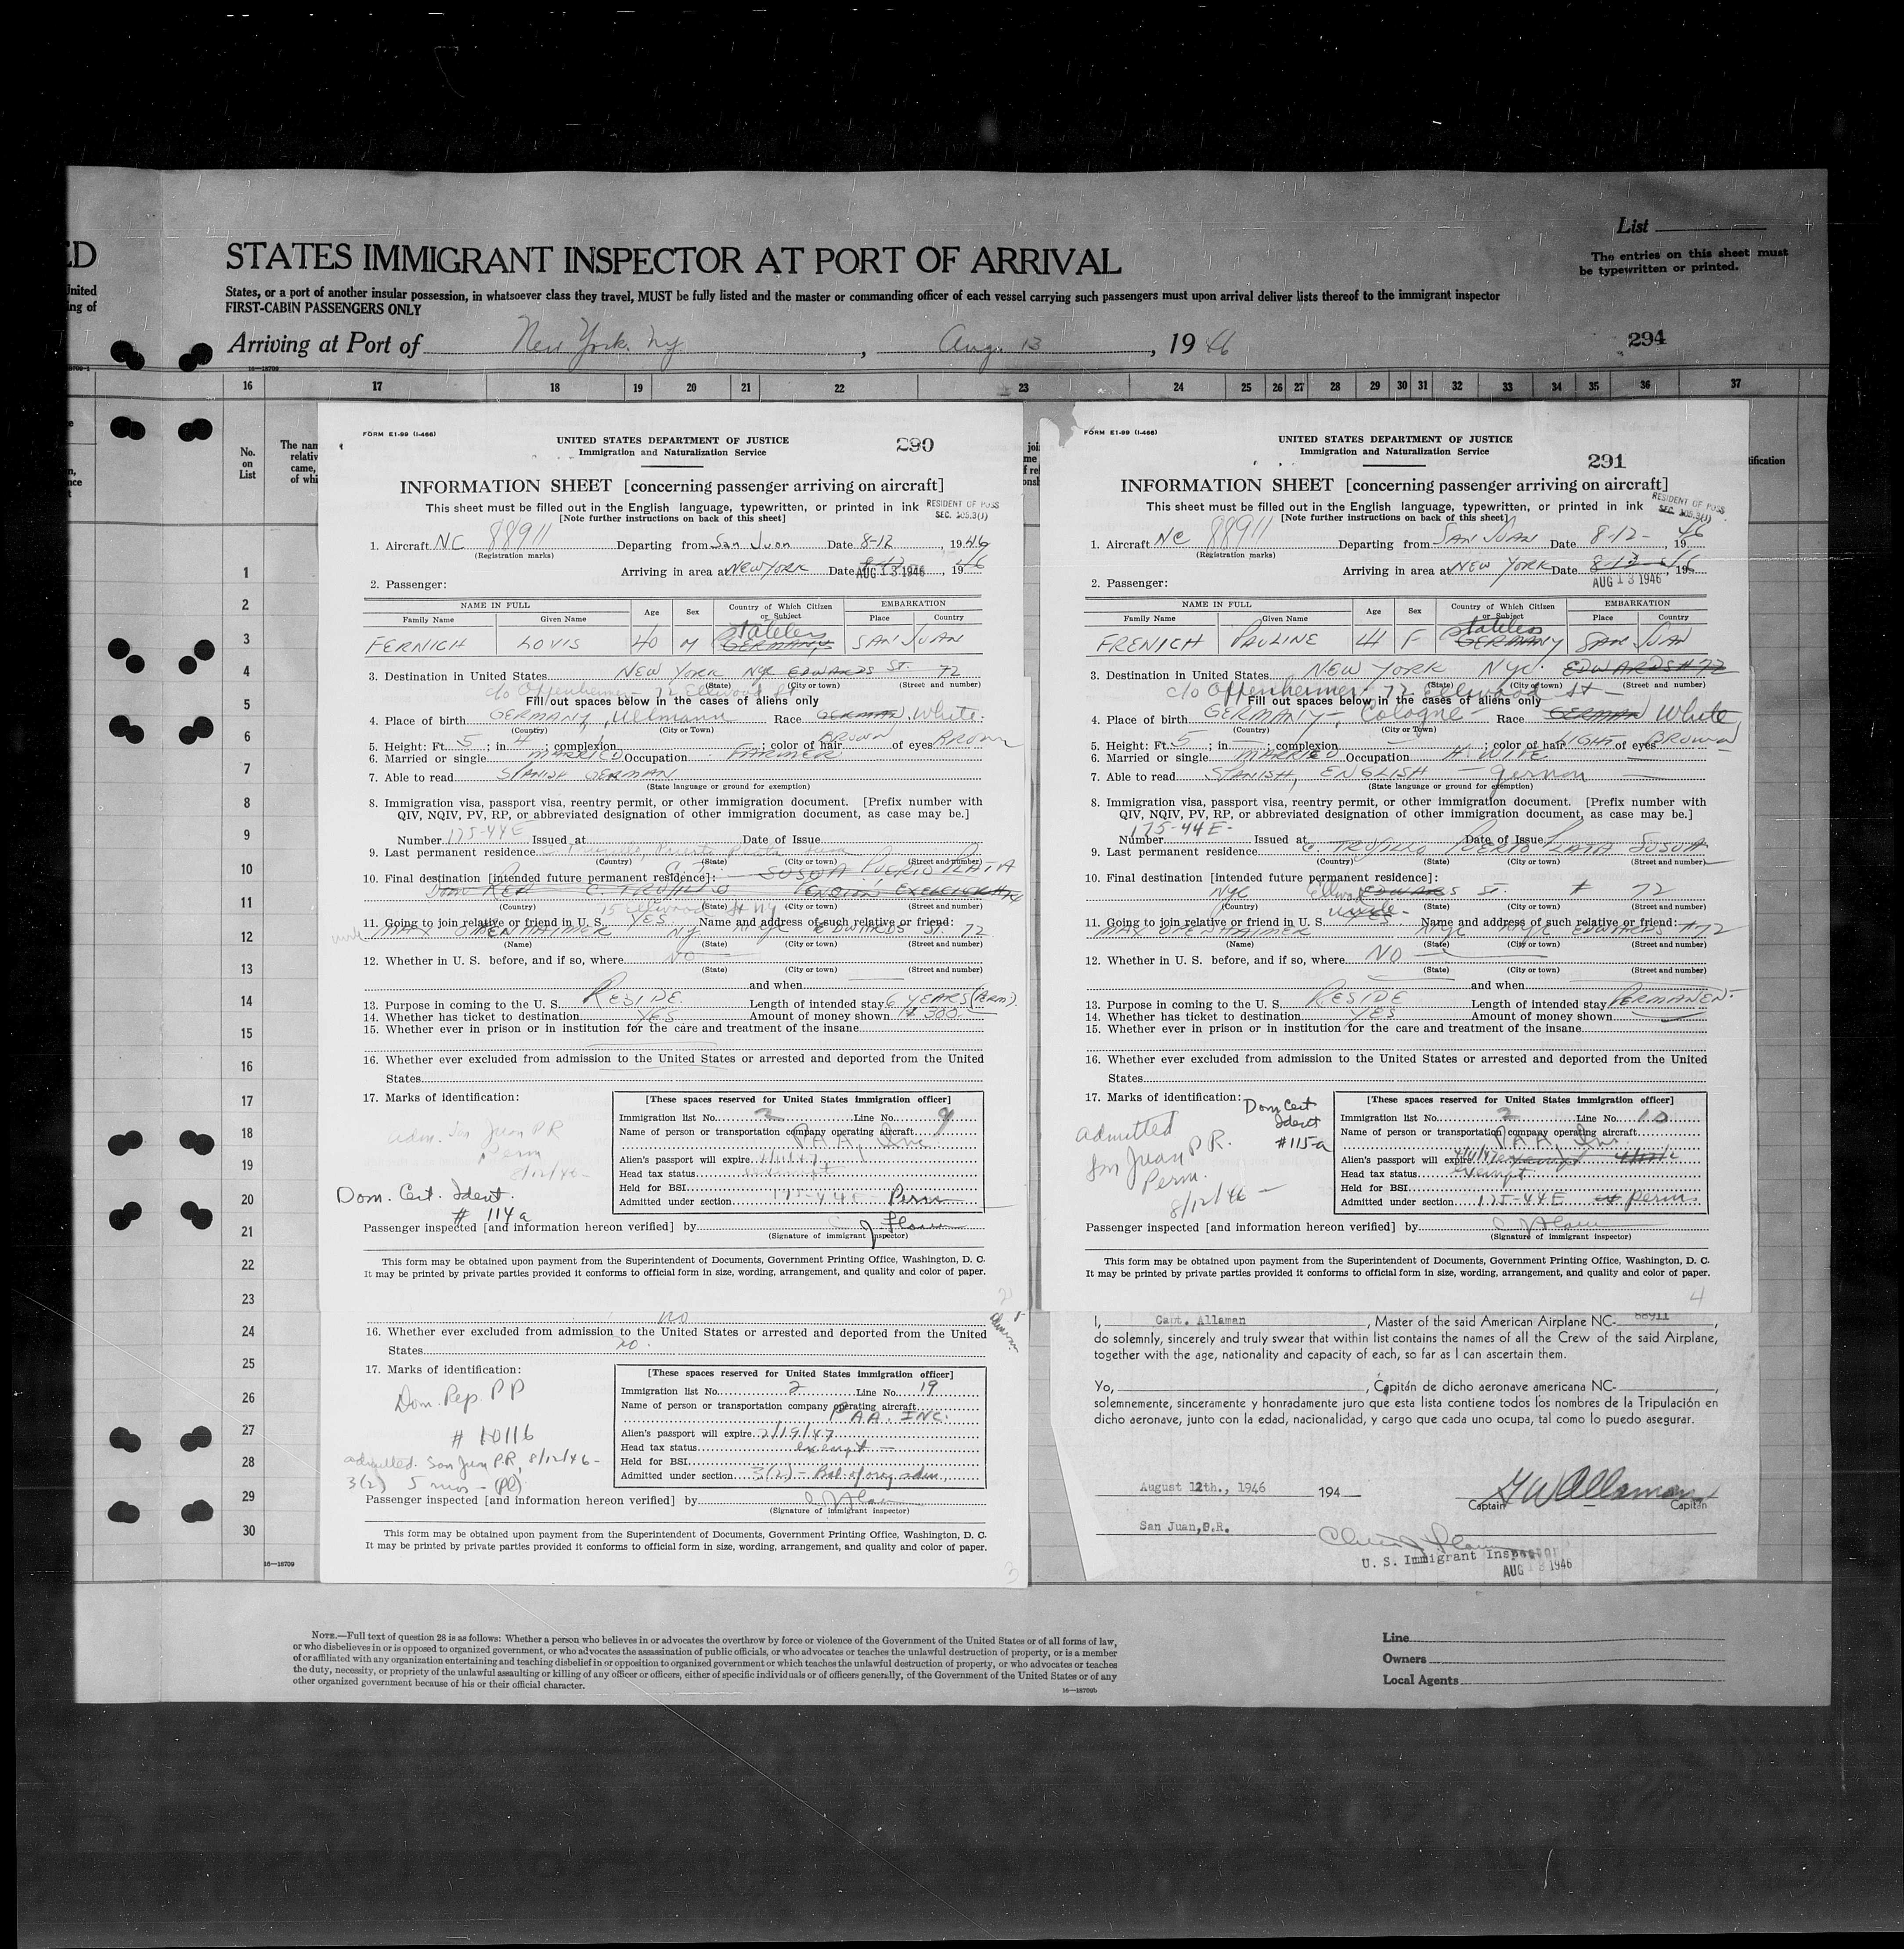 ED
United
ing of
STATES IMMIGRANT INSPECTOR AT PORT OF ARRIVAL
List
The entries on this sheet must
be typewritten or printed.
States, or a port of another insular possession, in whatsoever class they travel, MUST be fully listed and the master or commanding officer of each vessel carrying such passengers must upon arrival deliver lists thereof to the immigrant inspector
FIRST-CABIN PASSENGERS ONLY
Arriving at Port of New York, Ny, Aug. 13, 1946
294
16—18709
16 17 18 19 20 21 22 23 24 25 26 27 28 29 30 31 32 33 34 35 36 37
No.
on
List
The nam
relativ
came,
of whi
1
2
3
4
5
6
7
8
9
10
11
12
13
14
15
16
17
18
19
20
21
22
23
24
25
26
27
28
29
30
16—18709
FORM E1-99 (I-466)
UNITED STATES DEPARTMENT OF JUSTICE
Immigration and Naturalization Service
290
INFORMATION SHEET [concerning passenger arriving on aircraft]
This sheet must be filled out in the English language, typewritten, or printed in ink
[Note further instructions on back of this sheet]
RESIDENT OF POSS
SEC. 105.3(J)
1. Aircraft NC 88911 Departing from San Juon Date 8-12, 1946
(Registration marks)
Arriving in area at NEW YORK Date AUG 13 1946, 1946
2. Passenger:
NAME IN FULL Age Sex Country of Which Citizen or Subject EMBARKATION
Family Name Given Name Place Country
FERNICH LOVIS 40 M Stateless GERMANY SAN JUAN
3. Destination in United States NEW YORK NYC EDWARDS ST. 72
(State) (City or town) (Street and number)
c/o Oppenheimer - 72 Ellwood St
Fill out spaces below in the cases of aliens only
4. Place of birth GERMANY, Uelmann Race GERMAN White
(Country) (City or Town)
5. Height: Ft. 5; in 4; complexion; color of hair BROWN of eyes BROWN
6. Married or single MARRIED Occupation FARMER
7. Able to read SPANISH GERMAN
(State language or ground for exemption)
8. Immigration visa, passport visa, reentry permit, or other immigration document. [Prefix number with
QIV, NQIV, PV, RP, or abbreviated designation of other immigration document, as case may be.]
Number 125-44E Issued at Date of Issue
9. Last permanent residence C. Trujillo, Puerto Plata Susa
(Country) (State) (City or town) (Street and number)
SOSUA PUERTO PLATA
10. Final destination [intended future permanent residence]:
DOM REP C. TRUJILLO
(Country) (State) (City or town) (Street and number)
75 Ellwood St NY
11. Going to join relative or friend in U. S. YES Name and address of such relative or friend:
MAX OPPENHAIMER NY NYC EDWARDS ST. 72
(Name) (State) (City or town) (Street and number)
12. Whether in U. S. before, and if so, where NO
(State) (City or town) (Street and number)
and when
13. Purpose in coming to the U. S. RESIDE Length of intended stay 6 YEARS (PERM)
14. Whether has ticket to destination YES Amount of money shown $ 300
15. Whether ever in prison or in institution for the care and treatment of the insane
16. Whether ever excluded from admission to the United States or arrested and deported from the United
States
17. Marks of identification:
adm. San Juan PR
Perm
8/12/46
Dom. Cert. Ident.
# 114a
[These spaces reserved for United States immigration officer]
Immigration list No. 2 Line No. 9
Name of person or transportation company operating aircraft
P.A.A. Inc
Alien's passport will expire
Head tax status
Held for BSI
Admitted under section 175-44E - Perm
Passenger inspected [and information hereon verified] by
(Signature of immigrant inspector)
This form may be obtained upon payment from the Superintendent of Documents, Government Printing Office, Washington, D. C.
It may be printed by private parties provided it conforms to official form in size, wording, arrangement, and quality and color of paper.
no
16. Whether ever excluded from admission to the United States or arrested and deported from the United
States no.
17. Marks of identification:
Dom. Rep. PP
# 10116
admitted San Juan P.R. 8/12/46 -
3(2) 5 mos -
[These spaces reserved for United States immigration officer]
Immigration list No. 2 Line No. 19
Name of person or transportation company operating aircraft
P.A.A. INC.
Alien's passport will expire 2/19/47
Head tax status exempt -
Held for BSI
Admitted under section 3(2) - Bal. of orig. adm.
Passenger inspected [and information hereon verified] by
(Signature of immigrant inspector)
This form may be obtained upon payment from the Superintendent of Documents, Government Printing Office, Washington, D. C.
It may be printed by private parties provided it conforms to official form in size, wording, arrangement, and quality and color of paper.
3
FORM E1-99 (I-466)
UNITED STATES DEPARTMENT OF JUSTICE
Immigration and Naturalization Service
291
INFORMATION SHEET [concerning passenger arriving on aircraft]
This sheet must be filled out in the English language, typewritten, or printed in ink
[Note further instructions on back of this sheet]
RESIDENT OF POSS
SEC. 105.3(J)
1. Aircraft NC 88911 Departing from SAN JUAN Date 8-12-, 1946
(Registration marks)
Arriving in area at NEW YORK Date 8-12-46, 19
AUG 13 1946
2. Passenger:
NAME IN FULL Age Sex Country of Which Citizen or Subject EMBARKATION
Family Name Given Name Place Country
FRENICH PAULINE 41 F Stateless GERMANY SAN JUAN
3. Destination in United States NEW YORK NYC. EDWARDS #72
(State) (City or town) (Street and number)
c/o Oppenheimer - 72 Ellwood St -
Fill out spaces below in the cases of aliens only
4. Place of birth GERMANY - Cologne - Race GERMAN White
(Country) (City or Town)
5. Height: Ft. 5; in; complexion; color of hair LIGHT of eyes BROWN
6. Married or single MARRIED Occupation H. WIFE
7. Able to read SPANISH, ENGLISH - German
(State language or ground for exemption)
8. Immigration visa, passport visa, reentry permit, or other immigration document. [Prefix number with
QIV, NQIV, PV, RP, or abbreviated designation of other immigration document, as case may be.]
175-44E-
Number Issued at Date of Issue
9. Last permanent residence C. TRUJILLO PUERTO PLATA SOSUA
(Country) (State) (City or town) (Street and number)
10. Final destination [intended future permanent residence]:
NYC Ellwood EDWARDS ST. # 72
(Country) (State) (City or town) (Street and number)
uncle -
11. Going to join relative or friend in U. S. YES Name and address of such relative or friend:
MAX OPENHAIMER NYC NYC EDWARDS #72
(Name) (State) (City or town) (Street and number)
12. Whether in U. S. before, and if so, where NO
(State) (City or town) (Street and number)
and when
13. Purpose in coming to the U. S. RESIDE Length of intended stay PERMANENT
14. Whether has ticket to destination YES Amount of money shown
15. Whether ever in prison or in institution for the care and treatment of the insane
16. Whether ever excluded from admission to the United States or arrested and deported from the United
States
17. Marks of identification:
Dom Cert
Ident
#115-a
admitted
San Juan P.R.
Perm.
8/12/46 -
[These spaces reserved for United States immigration officer]
Immigration list No. 2 Line No. 10
Name of person or transportation company operating aircraft
P.A.A. Inc.
Alien's passport will expire
Head tax status exempt
Held for BSI
Admitted under section 175-44E perm
Passenger inspected [and information hereon verified] by
(Signature of immigrant inspector)
This form may be obtained upon payment from the Superintendent of Documents, Government Printing Office, Washington, D. C.
It may be printed by private parties provided it conforms to official form in size, wording, arrangement, and quality and color of paper.
4
I, Capt. Allaman, Master of the said American Airplane NC- 88911,
do solemnly, sincerely and truly swear that within list contains the names of all the Crew of the said Airplane,
together with the age, nationality and capacity of each, so far as I can ascertain them.
Yo, , Capitán de dicho aeronave americana NC- ,
solemnemente, sinceramente y honradamente juro que esta lista contiene todos los nombres de la Tripulación en
dicho aeronave, junto con la edad, nacionalidad, y cargo que cada uno ocupa, tal como lo puedo asegurar.
August 12th., 1946 194
Captain Capitán
San Juan,P.R.
U. S. Immigrant Inspector
AUG 13 1946
NOTE.—Full text of question 28 is as follows: Whether a person who believes in or advocates the overthrow by force or violence of the Government of the United States or of all forms of law,
or who disbelieves in or is opposed to organized government, or who advocates the assassination of public officials, or who advocates or teaches the unlawful destruction of property, or is a member
of or affiliated with any organization entertaining and teaching disbelief in or opposition to organized government or which teaches the unlawful destruction of property, or who advocates or teaches
the duty, necessity, or propriety of the unlawful assaulting or killing of any officer or officers, either of specific individuals or of officers generally, of the Government of the United States or of any
other organized government because of his or their official character.
16—18709b
Line
Owners
Local Agents